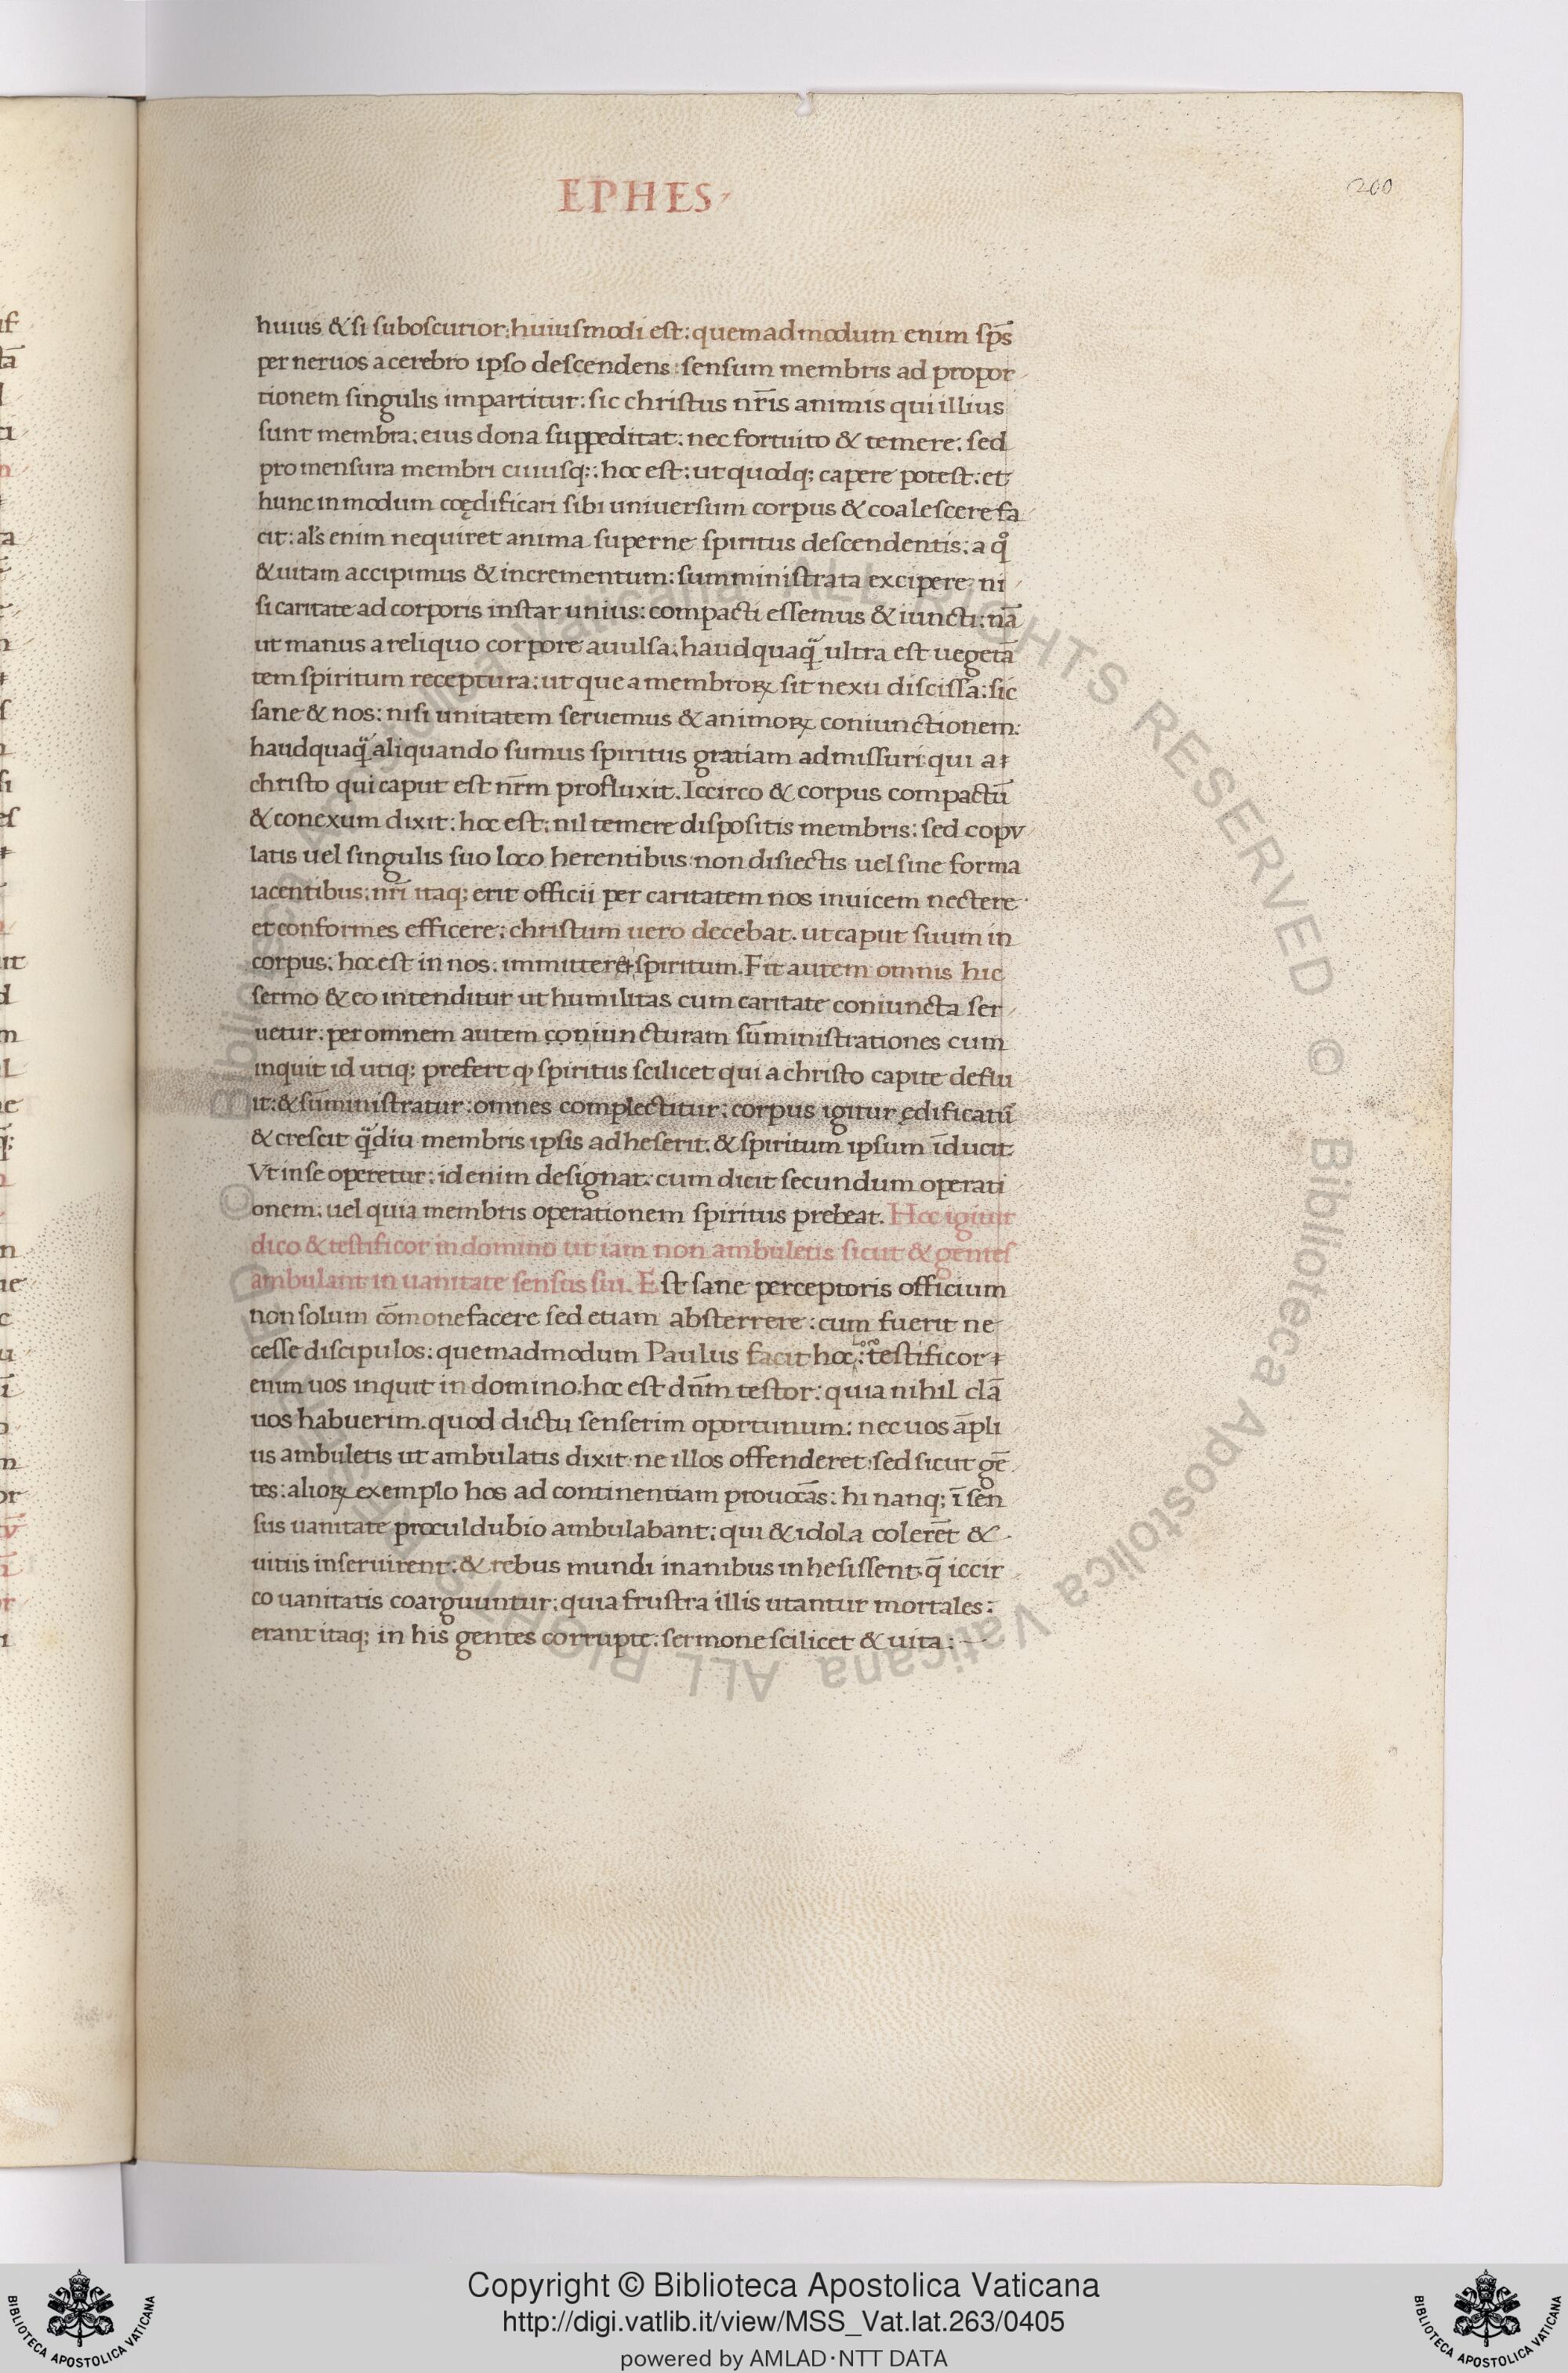 EPHES
200
huius & si suboscurior: huiusmodi est: quemadmodum enim sp̄s
per neruos a cerebro ipso descendens: sensum membris ad propor
tionem singulis impartitur: sic christus nr̄is animis qui illius
sunt membra: eius dona suppeditat: nec fortuito & temere: sed
pro mensura membri cuiusq;: hoc est: ut quodq; capere potest: et
hunc in modum coędificari sibi uniuersum corpus & coalescere fa
cit: al's enim nequiret anima superne spiritus descendentis: a qͦ
& uitam accipimus & incrementum: sumministrata excipere: ni
si caritate ad corporis instar unius: compacti essemus & iuncti: nā
ut manus a reliquo corpore auulsa: haudquaq̃ ultra est uegetā
tem spiritum receptura: ut que a membroꝝ sit nexu discissa: sic
sane & nos: nisi unitatem seruemus & animoꝝ coniunctionem:
haudquaq̃ aliquando sumus spiritus gratiam admissuri: qui a
christo qui caput est nr̄m profluxit. Iccirco & corpus compactū
& conexum dixit: hoc est: nil temere dispositis membris: sed copu
latis uel singulis suo loco herentibus: non disiectis uel sine forma
iacentibus: nr̄i itaq; erit officii per caritatem nos inuicem nectere
et conformes efficere: christum uero decebat. ut caput suum in
corpus: hoc est in nos: immittere spiritum. Fit autem omnis hic
sermo & eo intenditur ut humilitas cum caritate coniuncta ser
uetur: per omnem autem coniuncturam sūministrationes cum
inquit id utiq; prefert ꝙ spiritus scilicet qui a christo capite deflu
it: & sūministratur: omnes complectitur: corpus igitur ędificatū
& crescit q̃diu membris ipsis adheserit. & spiritum ipsum īducit
Vt in se operetur: id enim designat: cum dicit secundum operati
onem: uel quia membris operationem spiritus prebeat. Hoc igitur
dico & testificor in domino ut iam non ambuletis sicut & gentes
ambulant in uanitate sensus sui. Est sane perceptoris officium
non solum cōmonefacere sed etiam absterrere: cum fuerit ne
cesse discipulos: quemadmodum Paulus facit hoc: testificor
enim uos inquit in domino. hoc est dn̄m testor: quia nihil clā
uos habuerim. quod dictu senserim oportunum: nec uos āpli
us ambuletis ut ambulatis dixit ne illos offenderet: sed sicut gē
tes: alioꝝ exemplo hos ad continentiam prouocās: hi nanq; ī sen
sus uanitate proculdubio ambulabant: qui & idola colerēt &
uitiis inseruirent: & rebus mundi inanibus inhesissent. q̄ iccir
co uanitatis coarguuntur: quia frustra illis utantur mortales:
erant itaq; in his gentes corrupte: sermone scilicet & uita:
Copyright © Biblioteca Apostolica Vaticana
http://digi.vatlib.it/view/MSS_Vat.lat.263/0405
powered by AMLAD·NTT DATA